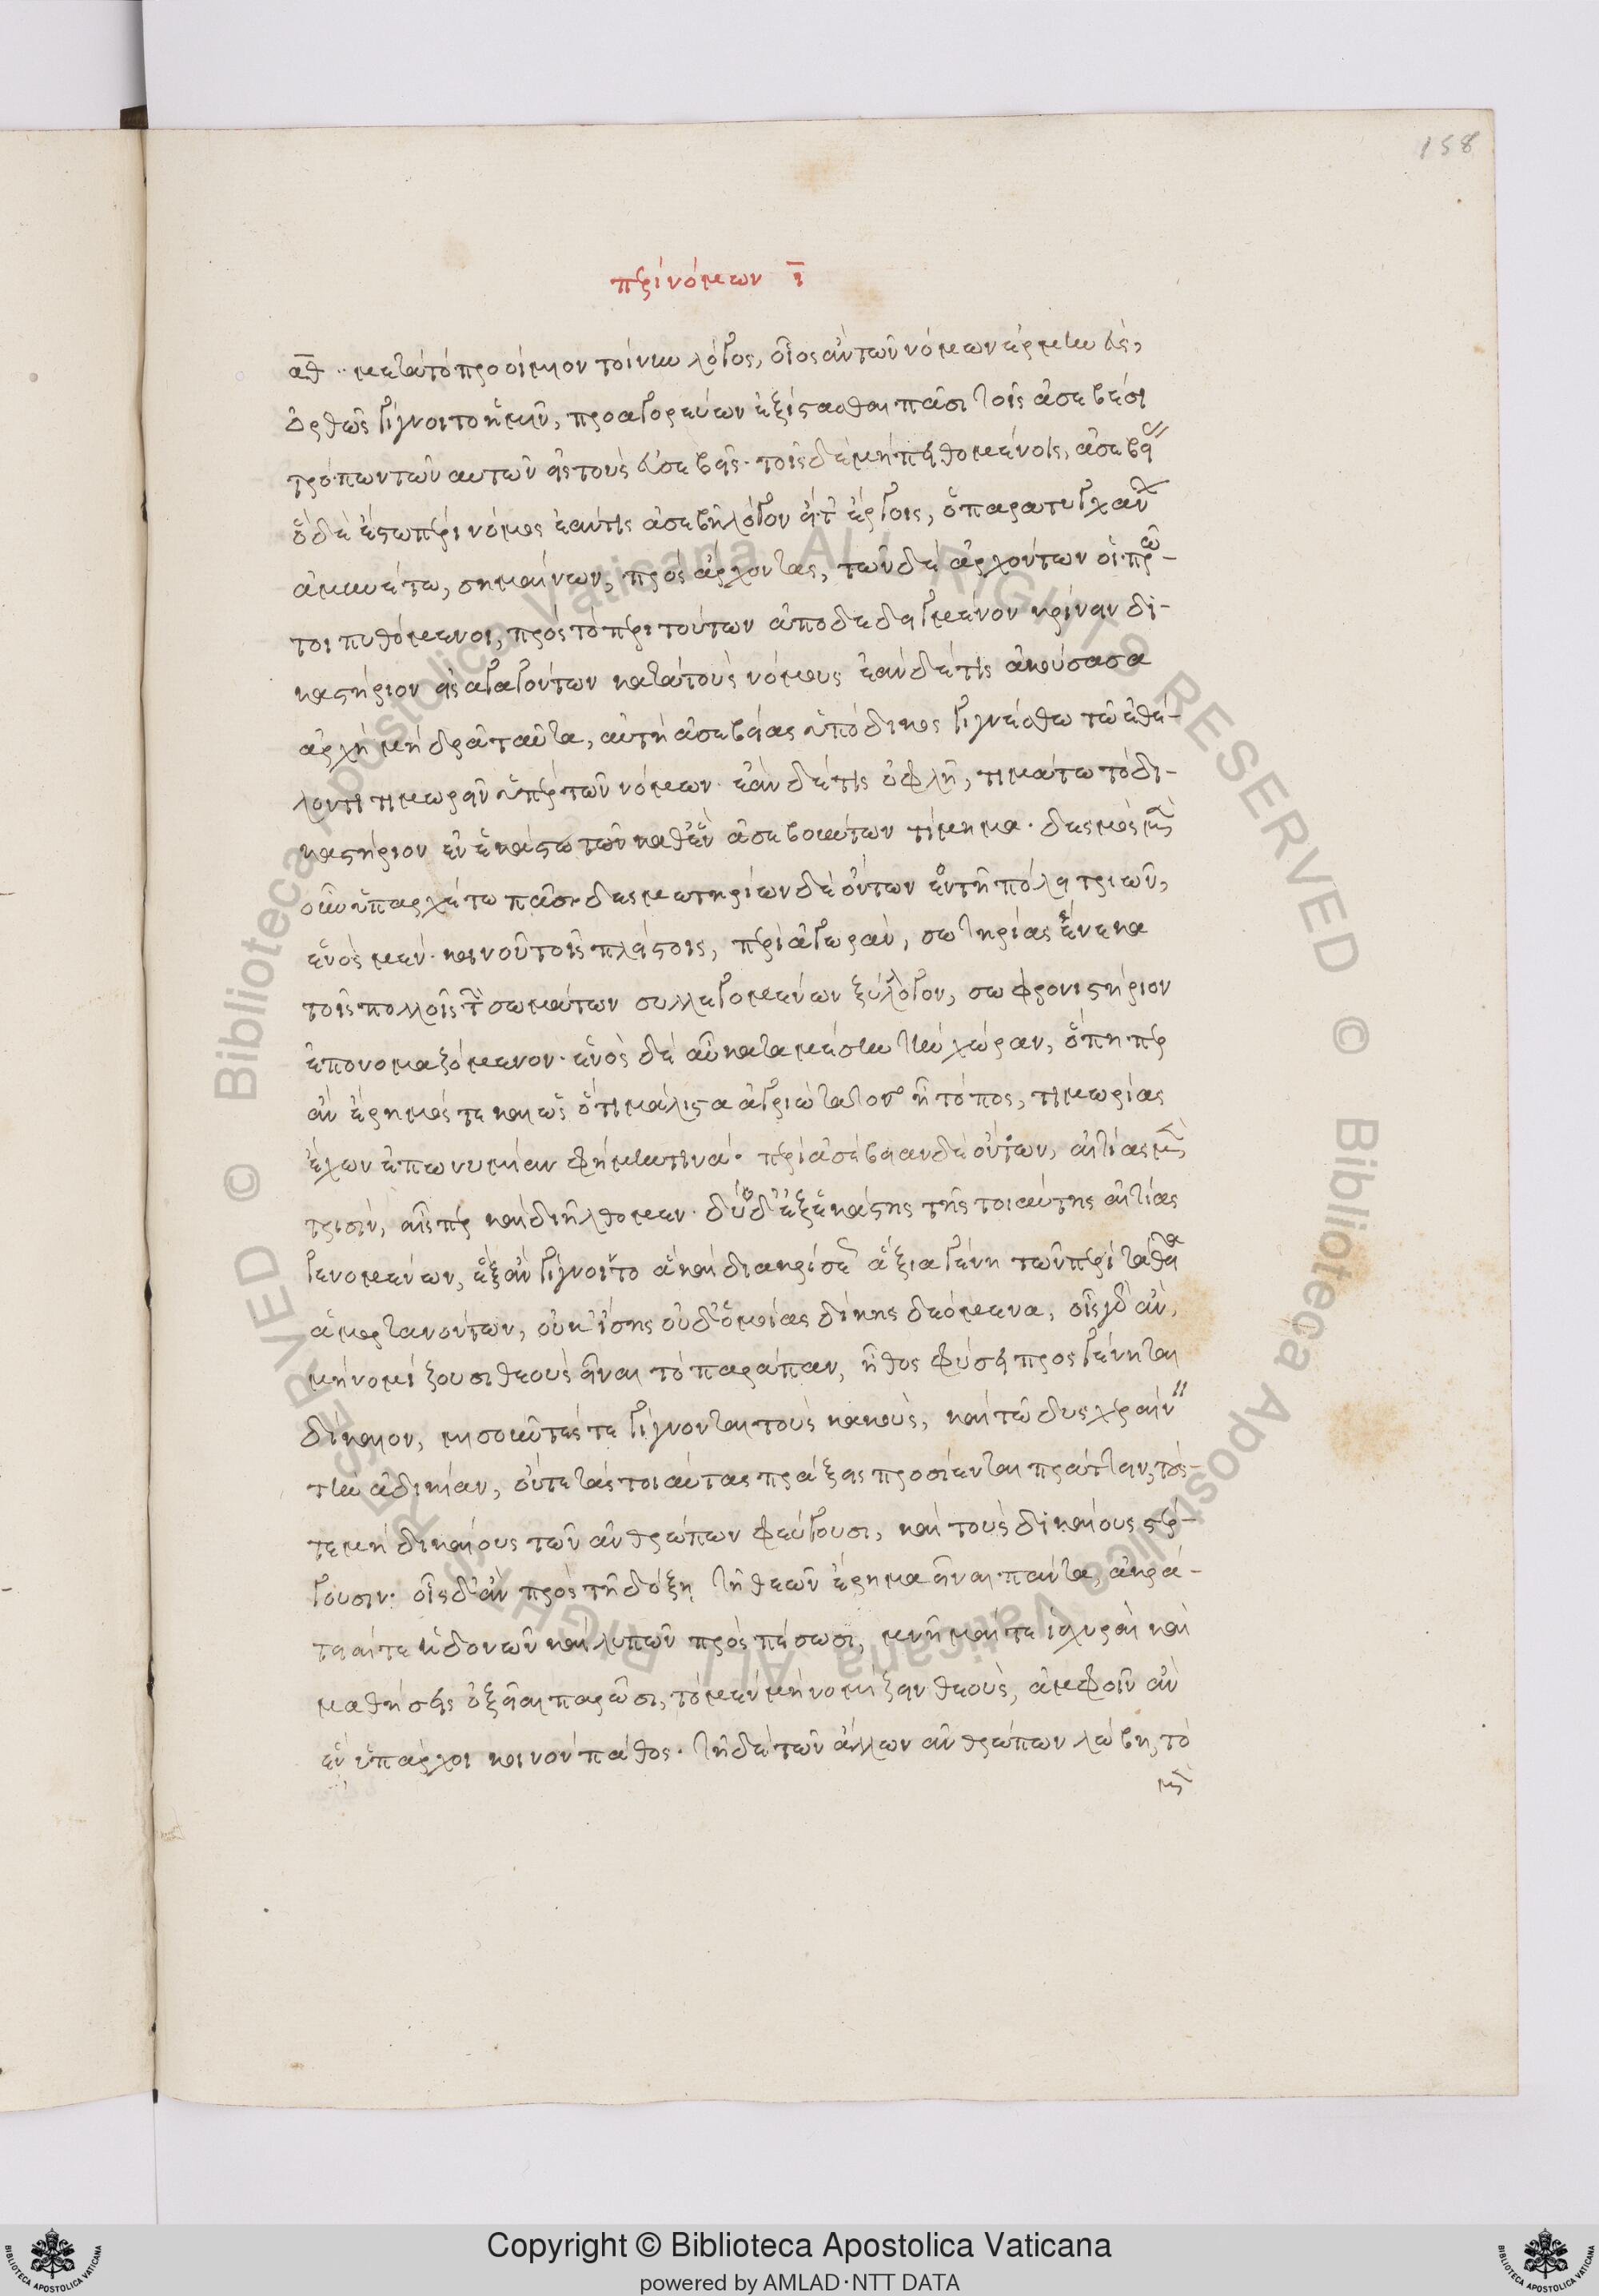 158
περὶ νόμων ι
αθ .. μετὰ τὸ προοίμιον τοίνυν λόγος, οἷος ἂν τῶν νόμων ἑρμηνεὺς,
ὀρθῶς γίγνοιτο ἡμῖν, προαγορεύων ἐξίστασθαι πᾶσι τοῖς ἀσεβέσι
τρόπων τῶν αυτῶν εἰς τοὺς εὐσεβεῖς· τοῖς δὲ μὴ πειθομένοις, ἀσεβεί
ὅδε ἔστω πέρι νόμος ἐάν τις ἀσεβῇ λόγον εἴτ' ἔργοις, ὁ παρατυγχάν
ἀμυνέτω, σημαίνων, πρὸς ἄρχοντας, τῶν δὲ ἀρχόντων οἱ πρῶ-
τοι πυθόμενοι, πρὸς τὸ περὶ τούτων ἀποδεδειγμένον κρίνειν δι-
καστήριον εἰσαγαγόντων κατὰ τοὺς νόμους ἐὰν δέ τις ἀκούσασα
ἀρχὴ μὴ δρᾷ ταῦτα, αὐτὴ ἀσεβείας ὑπόδικος γιγνέσθω τῷ ἐθέ-
λοντι τιμωρεῖν ὑπὲρ τῶν νόμων· ἐὰν δέ τις ὀφλῇ, τιμάτω τὸ δι-
καστήριον ἓν ἑκάστῳ τῶν καθ' ἓν ἀσεβούντων τίμημα· δεσμὸς μὲν
οὖν ὑπαρχέτω πᾶσι· δεσμωτηρίων δὲ ὄντων ἐν τῇ πόλει τριῶν,
ἑνὸς μὲν· κοινοῦ τοῖς πλείστοις, περὶ ἀγορὰν, σωτηρίας ἕνεκα
τοῖς πολλοῖς τῶν σωμάτων συλλεγομένων ξύλλογον, σωφρονιστήριον
ἐπονομαζόμενον· ἑνὸς δὲ αὖ κατα μέσην τὴν χώραν, ὅπηπερ
ἂν ἔρημός τε καὶ ὡς ὅτι μάλιστα ἀγριώτατος ᾖ τόπος, τιμωρίας
ἔχων ἐπωνυμίαν φήμην τινά· περὶ ἀσέβειαν δὲ ὄντων, αἰτίαις μὲν
τρισὶν, αἷσπερ καὶ διήλθομεν· δύο δ' ἐξ ἑκάστης τῆς τοιαύτης αἰτίας
γενομένων, ἓξ ἂν γίγνοιντο ἃ καὶ διακρίσεως ἄξια γένη τῶν περὶ τὰ θεῖα
ἁμαρτανόντων, οὐκ ἴσης οὐδ' ὁμοίας δίκης δεόμενα, οἷς γὰρ ἂν,
μὴ νομίζουσι θεοὺς εἶναι τὸ παράπαν, ἦθος φύσει προσγένηται
δίκαιον, μισοῦντές τε γίγνονται τοὺς κακοὺς, καὶ τῷ δυσχεραίν
τὴν ἀδικίαν, οὔτε τὰς τοιαύτας πράξεις προσίενται πράττειν, τούς-
τε μὴ δικαίους τῶν ἀνθρώπων φεύγουσι, καὶ τοὺς δικαίους στέρ-
γουσιν· οἷς δ' ἂν πρὸς τῇ δόξῃ τῇ θεῶν ἔρημα εἶναι πάντα, ἀκρά-
τειαί τε ἡδονῶν καὶ λυπῶν προσπέσωσι, μνῆμαί τε ἰσχυραὶ καὶ
μαθήσεις ὀξεῖαι παρῶσι, τὸ μὲν μὴ νομίζειν θεοὺς, ἀμφοῖν ἂν
ἓν ὑπάρχοι κοινὸν πάθος· τῇ δὲ τῶν ἄλλων ἀνθρώπων λώβῃ, τὸ
μὲν
Copyright © Biblioteca Apostolica Vaticana
powered by AMLAD·NTT DATA